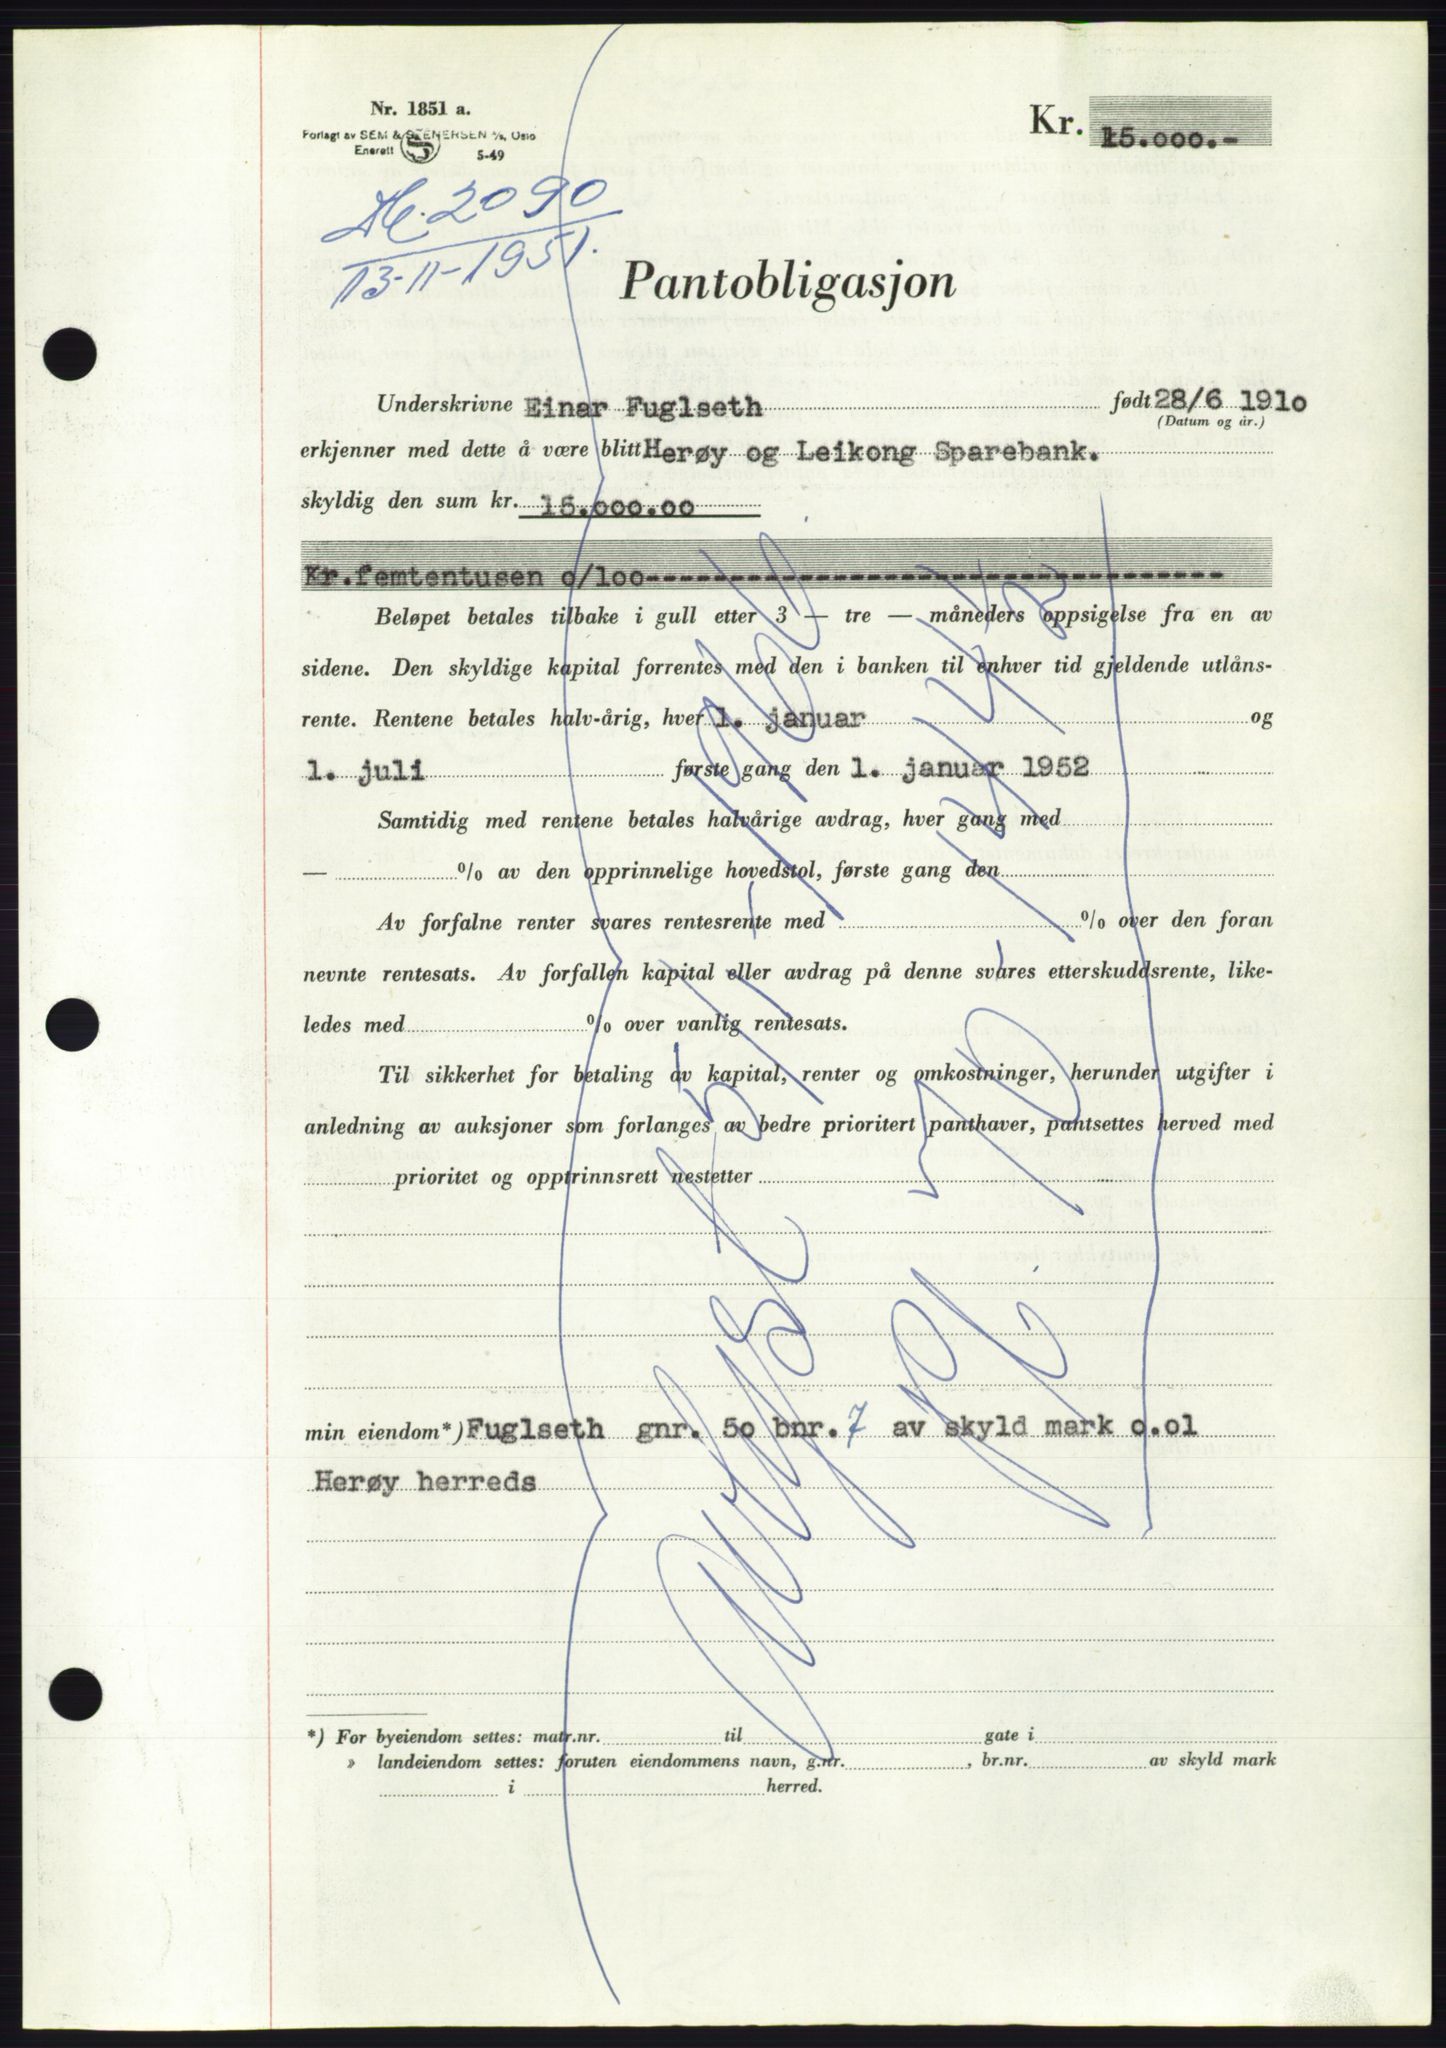 Nr. 1851 a.
Forlagt av SEM & STENERSEN A/S, Oslo
Enerett 5-49
Kr. 15.000.-
2090
13-11-1951.
Pantobligasjon
Underskrivne Einar Fuglseth født 28/6 1910
(Datum og år.)
erkjenner med dette å være blitt Herøy og Leikong Sparebank.
skyldig den sum kr. 15.000.00
Kr.femtentusen o/loo-----------------------------------
Beløpet betales tilbake i gull etter 3 — tre — måneders oppsigelse fra en av
sidene. Den skyldige kapital forrentes med den i banken til enhver tid gjeldende utlåns-
rente. Rentene betales halv-årig, hver 1. januar og
1. juli første gang den 1. januar 1952
Samtidig med rentene betales halvårige avdrag, hver gang med
— % av den opprinnelige hovedstol, første gang den
Av forfalne renter svares rentesrente med % over den foran
nevnte rentesats. Av forfallen kapital eller avdrag på denne svares etterskuddsrente, like-
ledes med % over vanlig rentesats.
Til sikkerhet for betaling av kapital, renter og omkostninger, herunder utgifter i
anledning av auksjoner som forlanges av bedre prioritert panthaver, pantsettes herved med
prioritet og opptrinnsrett nestetter
min eiendom*) Fuglseth gnr. 5o bnr. 7 av skyld mark o.ol
Herøy herreds
*) For byeiendom settes: matr.nr. til gate i
» landeiendom settes: foruten eiendommens navn, g.nr. , br.nr. av skyld mark
i herred.